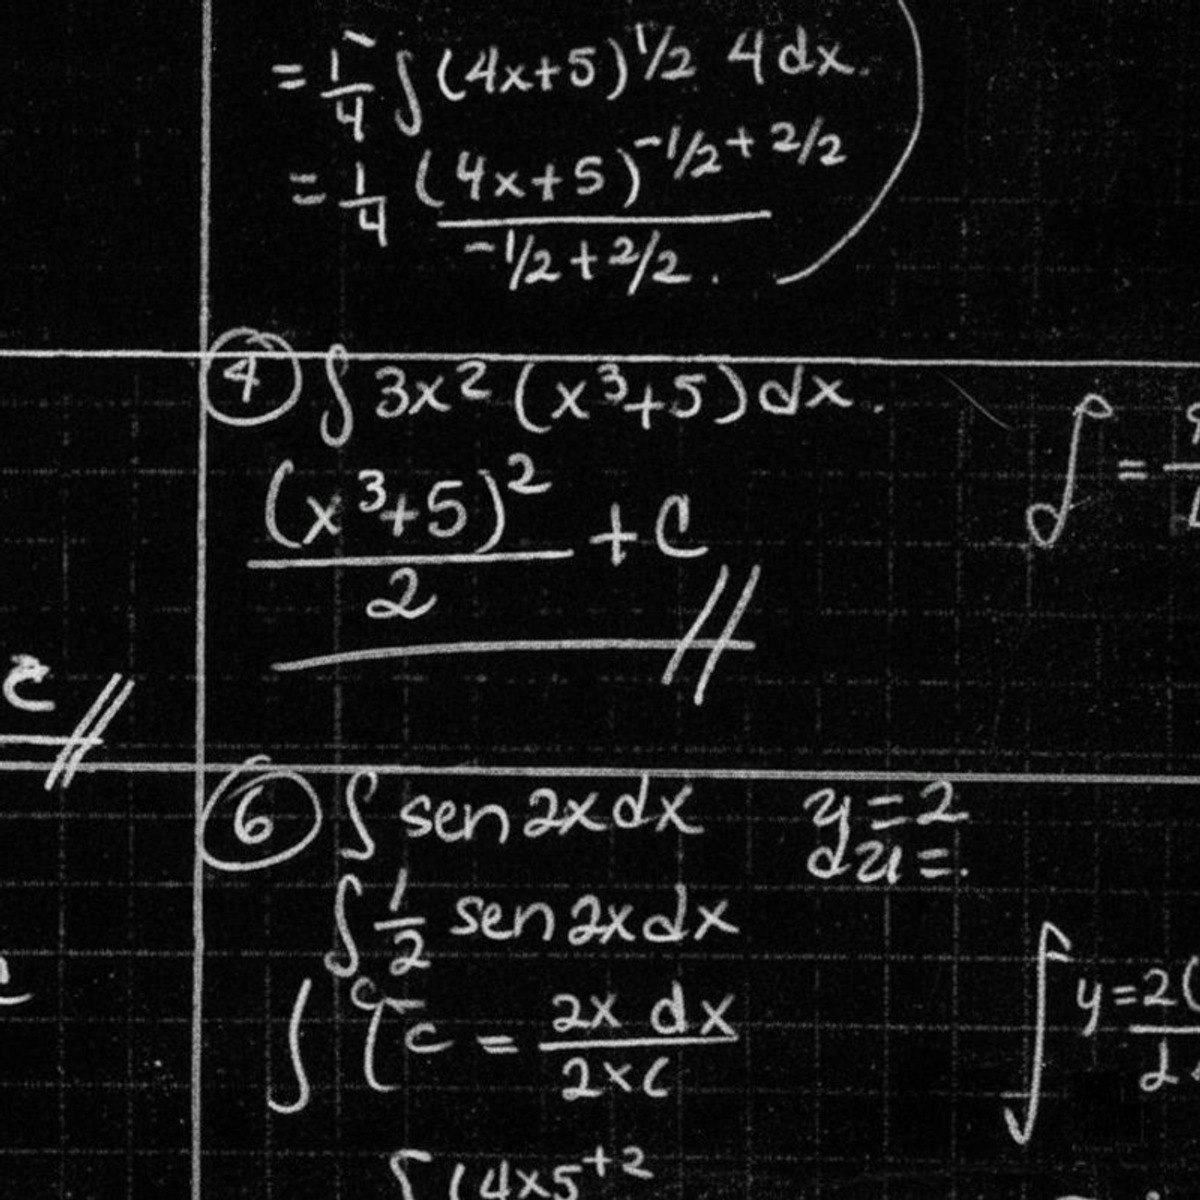 = 1/4 ∫ (4x+5)^1/2 4 dx.
= 1/4 (4x+5)^-1/2+2/2
-1/2+2/2.
④ ∫ 3x² (x³+5) dx.
(x³+5)² + C
2
∫ =
C
⑥ ∫ sen 2x dx y=2
du=.
∫ 1/2 sen 2x dx
∫ = 2x dx
2xc
y=2(
∫ (4x5^+2